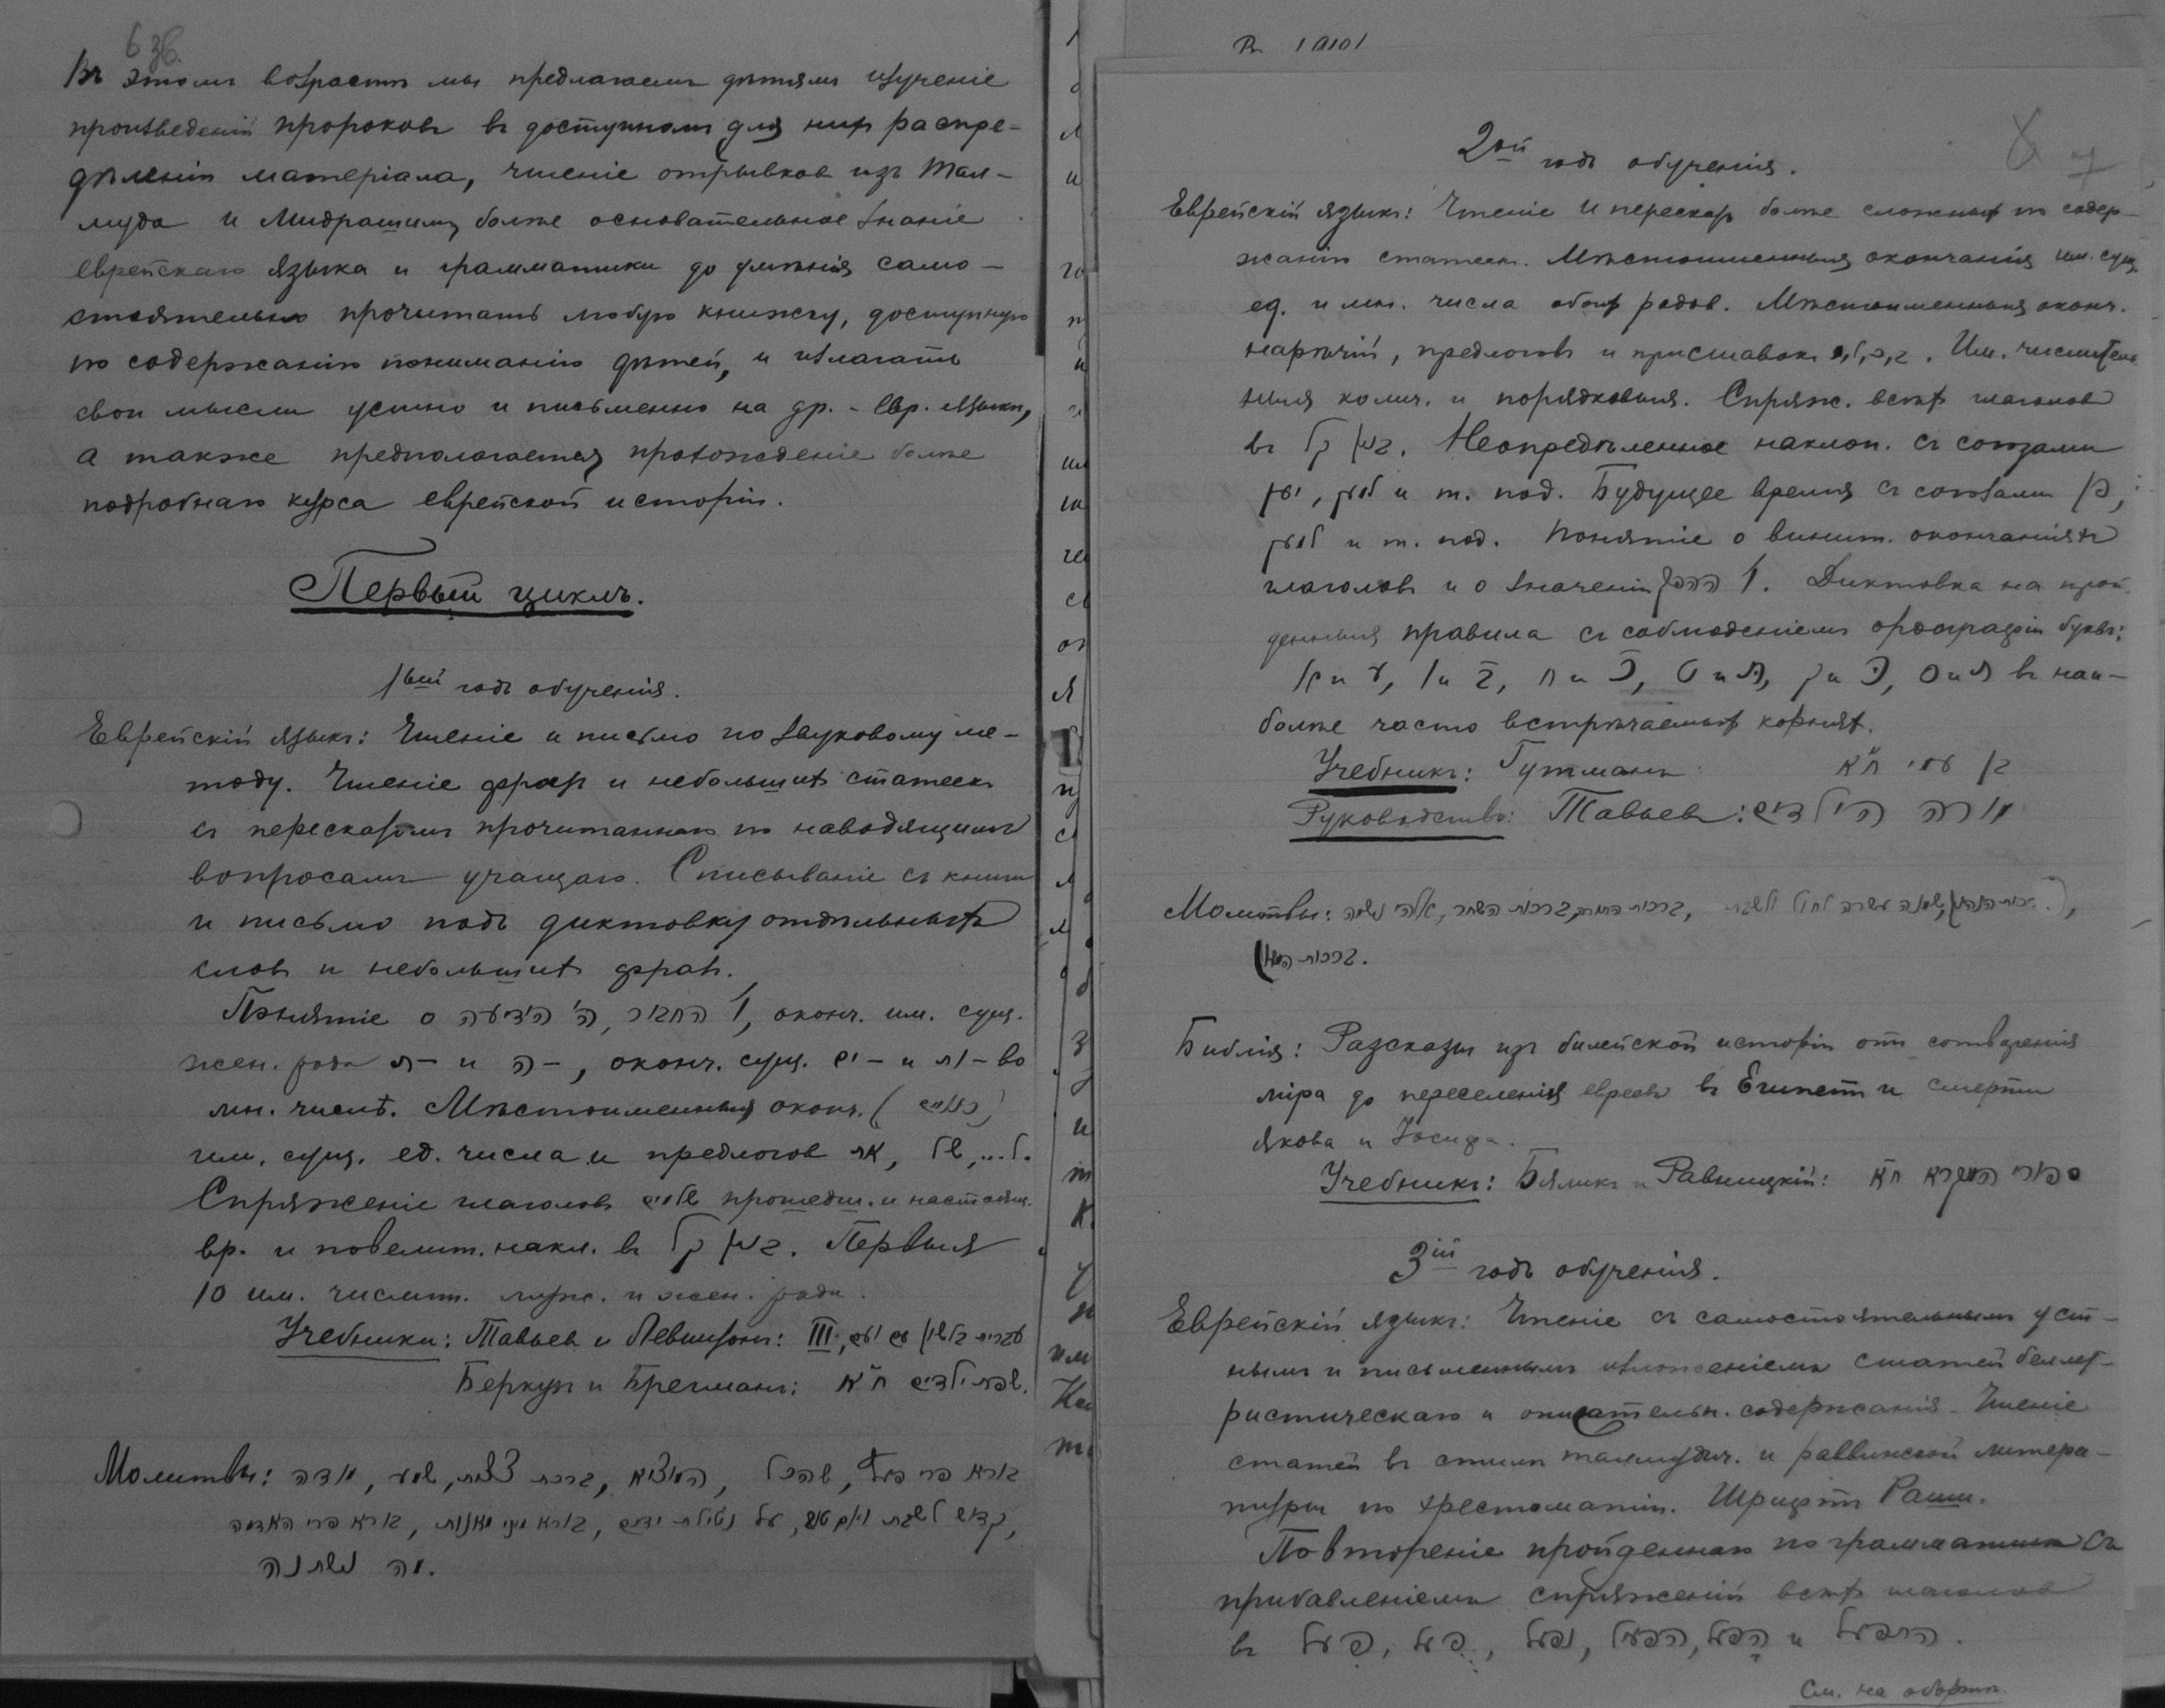 6 об.
Въ этомъ возрастѣ мы предлагаемъ дѣтямъ изученіе
произведеній пророковъ въ доступномъ для нихъ распре-
дѣленіи матеріала, чтеніе отрывковъ изъ Тал-
муда и Мидрашимъ, болѣе основательное знаніе
еврейскаго языка и грамматики до умѣнія само-
стоятельно прочитать любую книжку, доступную
по содержанію пониманію дѣтей, и излагать
свои мысли устно и письменно на др.-евр. языкѣ,
а также предполагается прохожденіе болѣе
подробнаго курса еврейской исторіи.
Первый циклъ.
1ый годъ обученія.
Еврейскій языкъ: Чтеніе и письмо по звуковому ме-
тоду. Чтеніе фразъ и небольшихъ статеекъ
съ пересказомъ прочитаннаго по наводящимъ
вопросамъ учащаго. Списываніе съ книги
и письмо подъ диктовку отдѣльныхъ
словъ и небольшихъ фразъ.
Понятіе о ה' הידיעה, ו' החבור, оконч. им. сущ.
жен. рода ת- и ה-, оконч. сущ. ים- и ות- во
мн. числѣ. Мѣстоименныя оконч. (כנוים)
им. сущ. ед. числа и предлоговъ את, של, ...ל.
Спряженіе глаголовъ שלמים прошедш. и настоящ.
вр. и повелит. накл. въ בנין קל. Первыя
10 им. числит. муж. и жен. рода.
Учебники: Тавьевъ и Левинзонъ: III, עברית בלשון עם ועם
Беркузъ и Брегманъ: שפת ילדים ח"א.
Молитвы: מודה, שמע, ברכת ציצית, המוציא, שהכל, בורא פרי העץ
בורא פרי האדמה, בורא מיני מזונות, על נטילת ידים, קדוש לשבת ויום טוב,
מה נשתנה.
2ой годъ обученія.
Еврейскій языкъ: Чтеніе и пересказъ болѣе сложныхъ по содер-
жанію статеекъ. Мѣстоименныя окончанія им. сущ.
ед. и мн. числа обоихъ родовъ. Мѣстоименныя оконч.
нарѣчій, предлоговъ и приставокъ ב, כ, ל, מ. Им. числитель-
ныя колич. и порядковыя. Спряж. всѣхъ глаголовъ
въ בנין קל. Неопредѣленное наклон. съ союзами
יען, למען и т. под. Будущее время съ союзами פן,
למען и т. под. Понятіе о винит. окончаніяхъ
глаголовъ и о значеніи ו' ההפוך. Диктовка на прой-
денныя правила съ соблюденіемъ орѳографіи буквъ:
א и ע, ו и ב, ח и כ, ט и ת, ק и כ, ס и ש въ наи-
болѣе часто встрѣчаемыхъ корняхъ.
Учебникъ: Гутманъ בן עמי ח"א
Руководство: Тавьевъ: מורה הילדים
Молитвы: אלהי נשמה, ברכות השחר, ברכות התורה, שמונה עשרה לחול ולשבת, ברכות הנהנין,
(ברכות המזון.
Библія: Разсказы изъ библейской исторіи отъ сотворенія
міра до переселенія евреевъ въ Египетъ и смерти
Якова и Іосифа.
Учебникъ: Бяликъ и Равницкій: ספורי המקרא ח"א
3ій годъ обученія.
Еврейскій языкъ: Чтеніе съ самостоятельнымъ уст-
нымъ и письменнымъ изложеніемъ статей беллет-
ристическаго и описательн. содержанія. Чтеніе
статей въ стилѣ талмудич. и раввинской литера-
туры по хрестоматіи. Шрифтъ Раши.
Повтореніе пройденнаго по грамматикѣ съ
прибавленіемъ спряженій всѣхъ глаголовъ
въ פעל, פעל, נפעל, הפעיל, הפעל и התפעל.
См. на оборотѣ